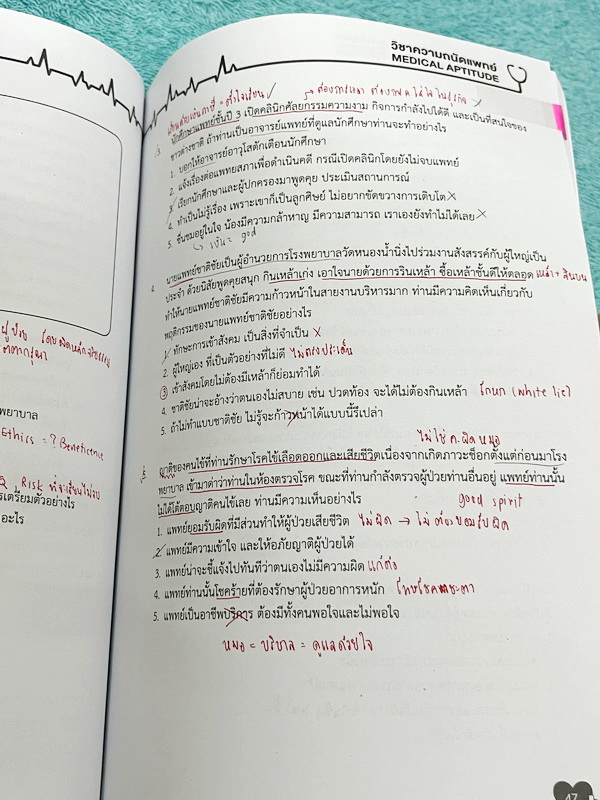 วิชาความถนัดแพทย์
MEDICAL APTITUDE
3. นักศึกษาแพทย์ชั้นปี 3 เปิดคลินิกศัลยกรรมความงาม กิจการกำลังไปได้ดี และเป็นที่สนใจของ
ชาวต่างชาติ ถ้าท่านเป็นอาจารย์แพทย์ที่ดูแลนักศึกษาท่านจะทำอย่างไร
1. บอกให้อาจารย์อาวุโสตักเตือนนักศึกษา
2. แจ้งเรื่องต่อแพทยสภาเพื่อดำเนินคดี กรณีเปิดคลินิกโดยยังไม่จบแพทย์
3. เรียกนักศึกษาและผู้ปกครองมาพูดคุย ประเมินสถานการณ์
4. ทำเป็นไม่รู้เรื่อง เพราะเขาก็เป็นลูกศิษย์ ไม่อยากขัดขวางการเติบโต X
5. ชื่นชมอยู่ในใจ น้องมีความกล้าหาญ มีความสามารถ เราเองยังทำไม่ได้เลย X
4. นายแพทย์ชาติชัยเป็นผู้อำนวยการโรงพยาบาลวัดหนองน้ำนิ่งไปร่วมงานสังสรรค์กับผู้ใหญ่เป็น
ประจำ ด้วยนิสัยพูดคุยสนุก กินเหล้าเก่ง เอาใจนายด้วยการรินเหล้า ซื้อเหล้าชั้นดีให้ตลอด เหล้า + สินบน
ทำให้นายแพทย์ชาติชัยมีความก้าวหน้าในสายงานบริหารมาก ท่านมีความคิดเห็นเกี่ยวกับ
พฤติกรรมของนายแพทย์ชาติชัยอย่างไร
1. ทักษะการเข้าสังคม เป็นสิ่งที่จำเป็น X
2. ผู้ใหญ่เอง ที่เป็นตัวอย่างที่ไม่ดี ไม่ตรงประเด็น
3 เข้าสังคมโดยไม่ต้องมีเหล้าก็ย่อมทำได้
4. ชาติชัยน่าจะอ้างว่าตนเองไม่สบาย เช่น ปวดท้อง จะได้ไม่ต้องกินเหล้า โกหก (White lie)
5. ถ้าไม่ทำแบบชาติชัย ไม่รู้จะก้าวหน้าได้แบบนี้รึเปล่า
ไม่ใช่ ค.ผิด หมอ
5. ญาติของคนไข้ที่ท่านรักษาโรคไข้เลือดออกและเสียชีวิตเนื่องจากเกิดภาวะช็อกตั้งแต่ก่อนมาโรง
พยาบาล เข้ามาด่าว่าท่านในห้องตรวจโรค ขณะที่ท่านกำลังตรวจผู้ป่วยท่านอื่นอยู่ แพทย์ท่านนั้น
ไม่ได้โต้ตอบญาติคนไข้เลย ท่านมีความเห็นอย่างไร
good spirit
1. แพทย์ยอมรับผิดที่มีส่วนทำให้ผู้ป่วยเสียชีวิต ไม่ผิด → ไม่ต้องยอมรับผิด
2. แพทย์มีความเข้าใจ และให้อภัยญาติผู้ป่วยได้
3. แพทย์น่าจะชี้แจ้งไปทันทีว่าตนเองไม่มีความผิด แก้ตัว
4. แพทย์ท่านนั้นโชคร้ายที่ต้องรักษาผู้ป่วยอาการหนัก โทษโชคชะตา
5. แพทย์เป็นอาชีพบริการ ต้องมีทั้งคนพอใจและไม่พอใจ
หมอ = บริบาล = ดูแลด้วยใจ
พยาบาล
Ethics = ? Beneficence
รเตรียมตัวอย่างไร
อะไร
47